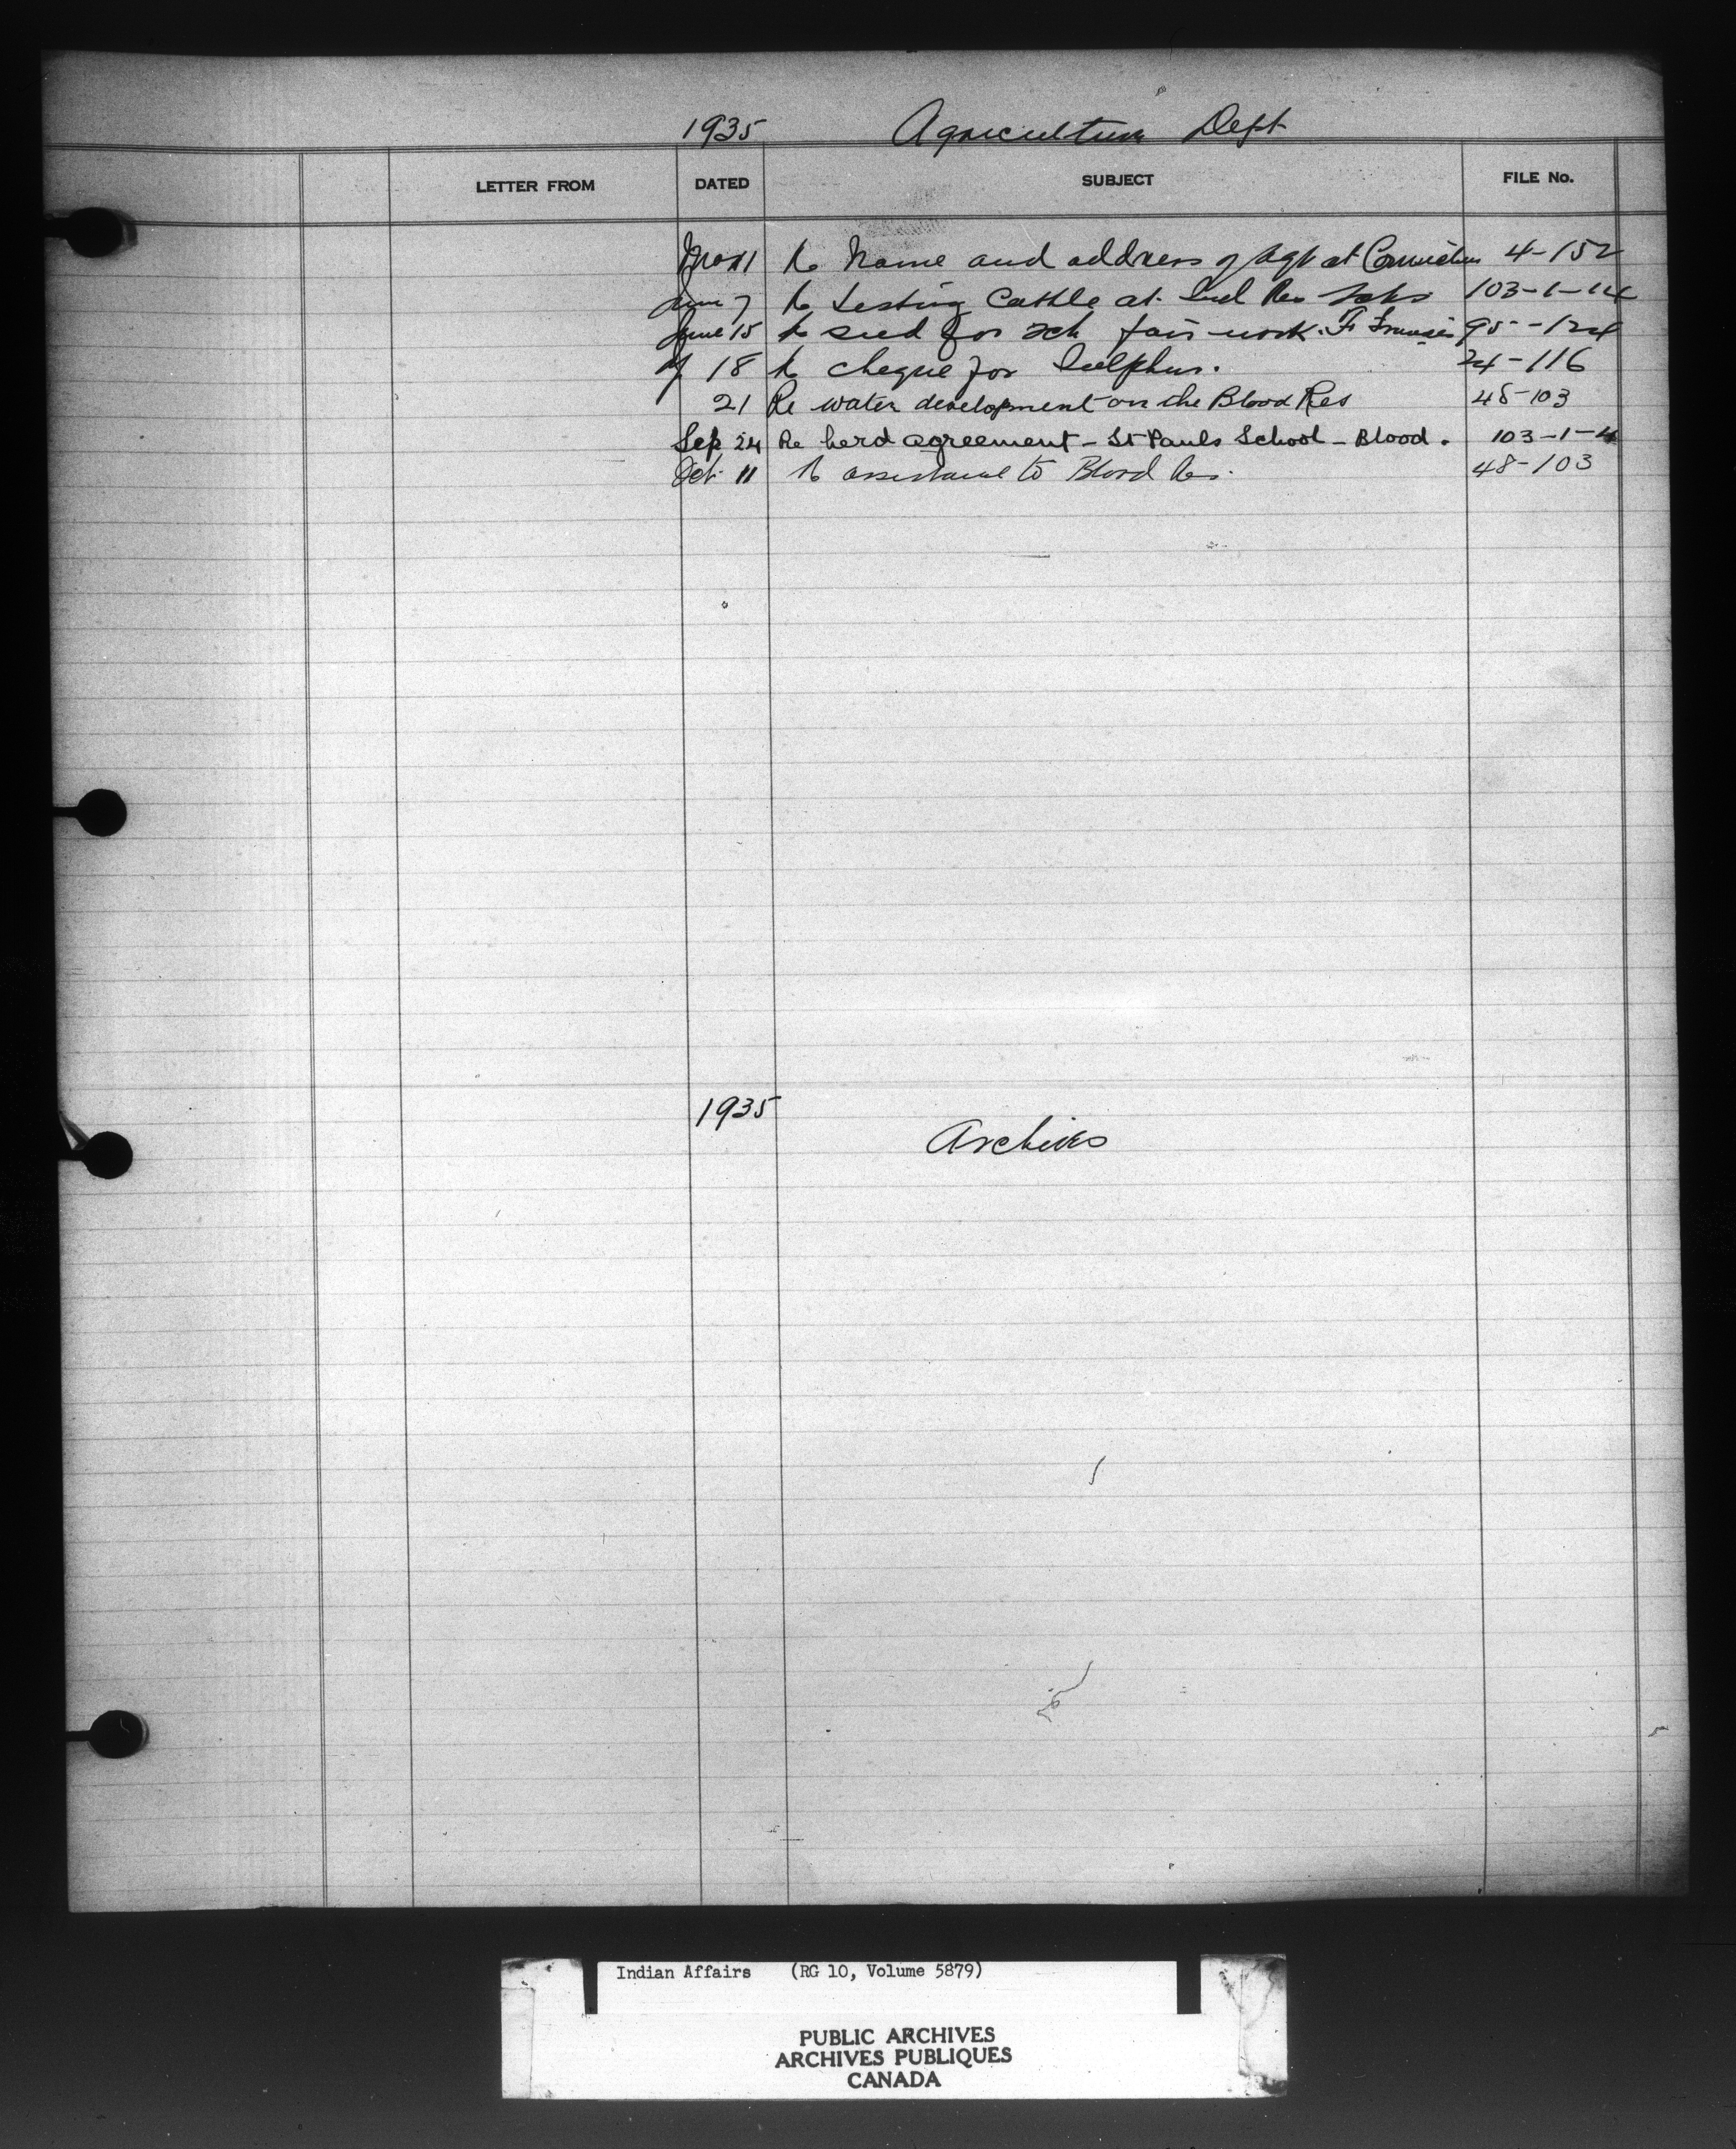 1935 Agriculture Dept
LETTER FROM DATED SUBJECT FILE No.
Re Name and address of Agt at 4-152
June 7 Re testing Cattle at Ind Res Schs 103-1-14
June 15 Re seed for sch fair work. Ft Frances 95-124
18 Re cheque for Sulphur. 24-116
21 Re water development on the Blood Res 48-103
Sep 24 Re herd agreement - St Pauls School - Blood. 103-1-4
Oct 11 Re assistance to Blood Res. 48-103
1935
Archives
Indian Affairs (RG 10, Volume 5879)
PUBLIC ARCHIVES
ARCHIVES PUBLIQUES
CANADA